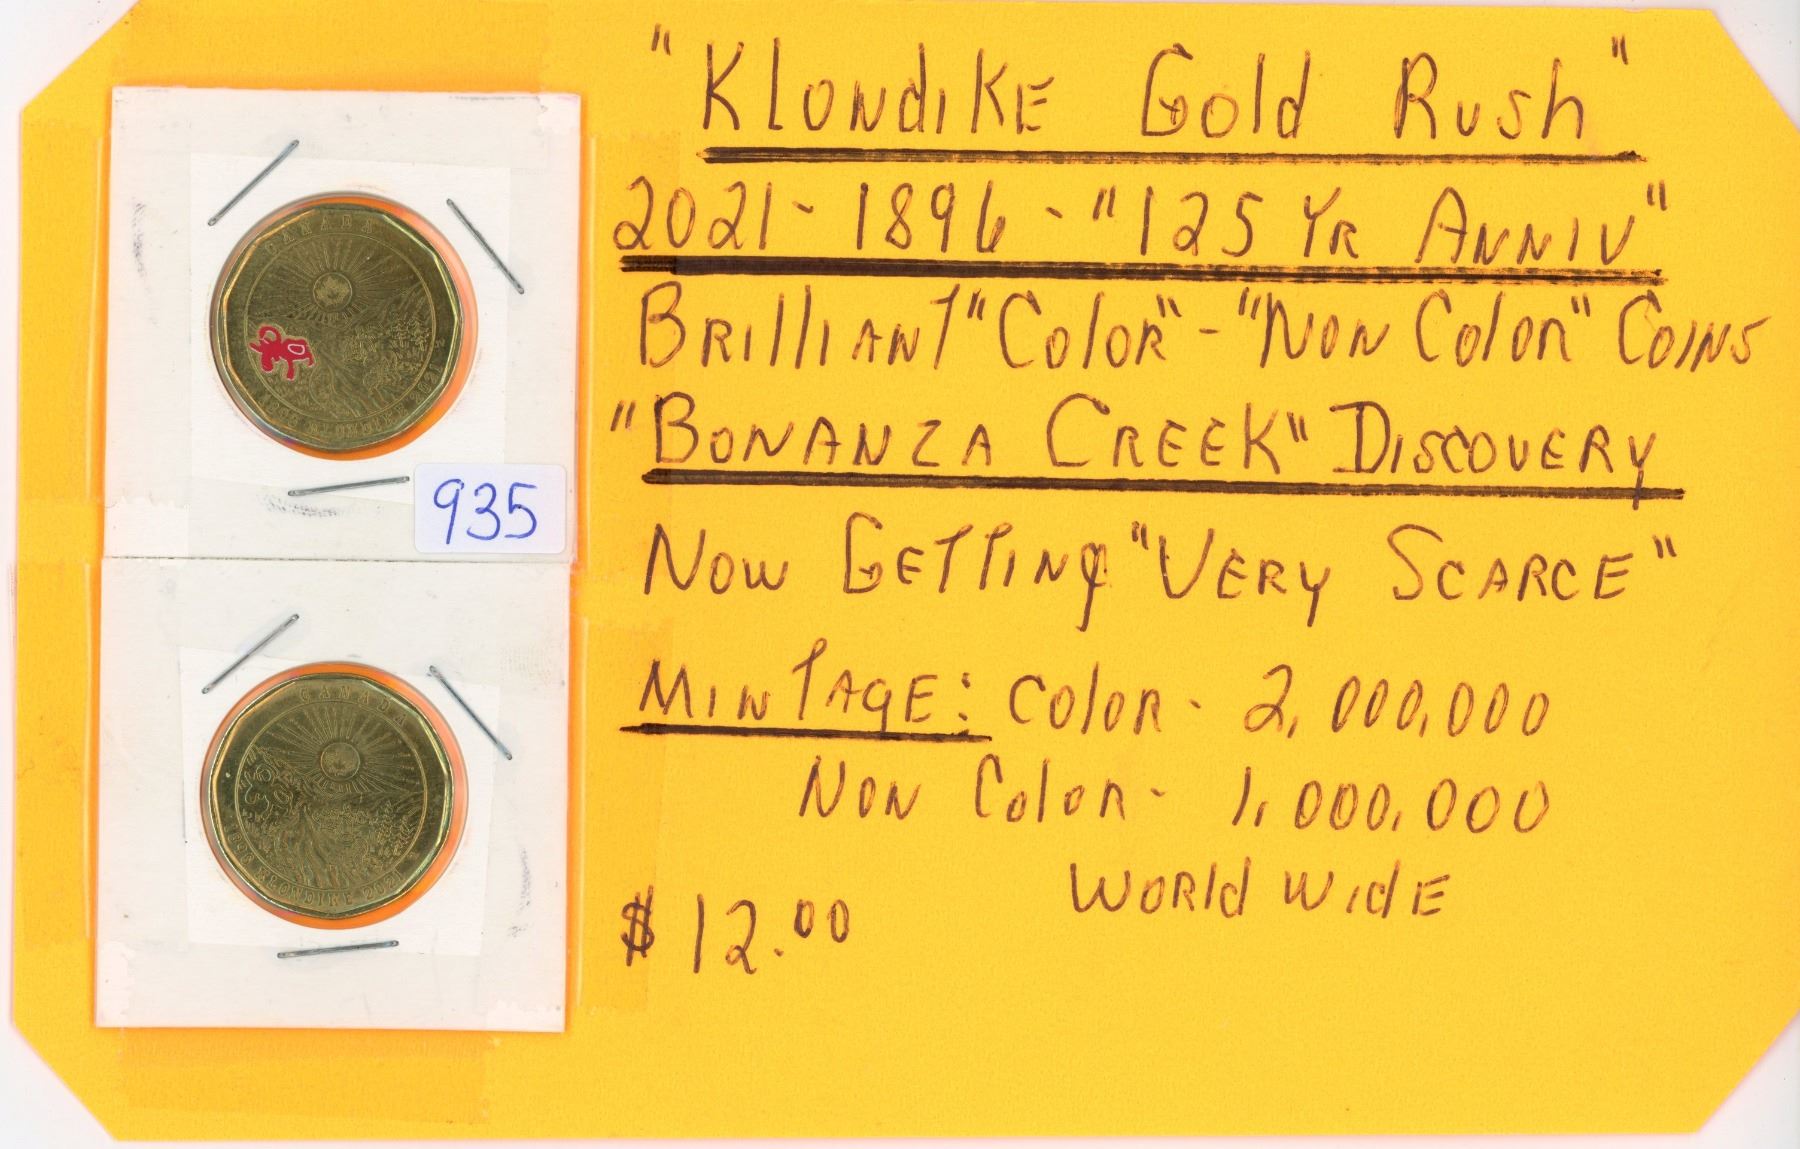 "Klondike Gold Rush"
2021-1896-"125 Yr Anniv"
Brilliant "Color"-"Non Color" Coins
"Bonanza Creek" Discovery
Now Getting "Very Scarce"
Mintage: Color - 2,000,000
Non Color - 1,000,000
World Wide
$12.00
CANADA
1896 KLONDIKE 2021
935
CANADA
1896 KLONDIKE 2021